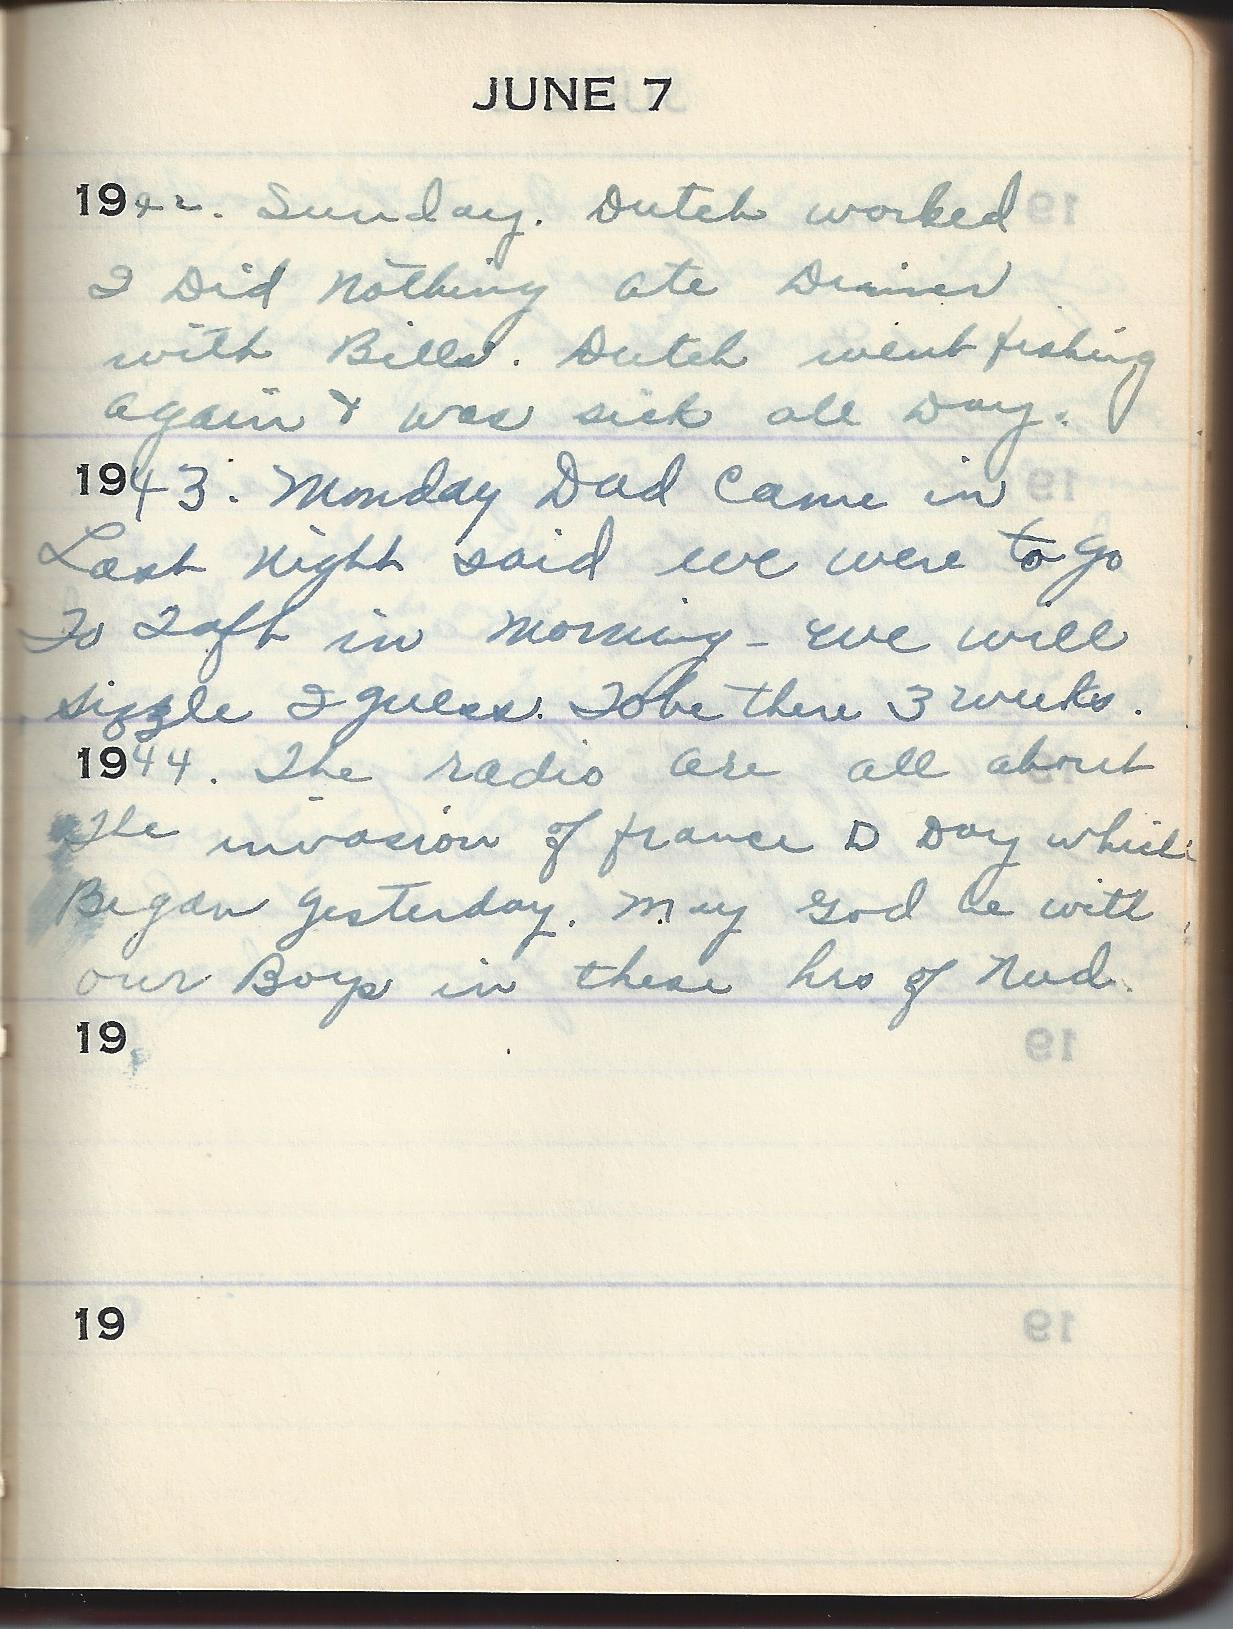 JUNE 7
1942. Sunday. Dutch worked
I Did Nothing ate Dinner
with Bills. Dutch went fishing
again & was sick all Day.
1943. Monday Dad Came in
Last Night said we were to go
To Taft in Morning - we will
sizzle I guess. To be there 3 weeks.
1944. The radio are all about
The invasion of france D Day which
Began Yesterday. May God be with
our Boys in these hrs of Need.
19
19